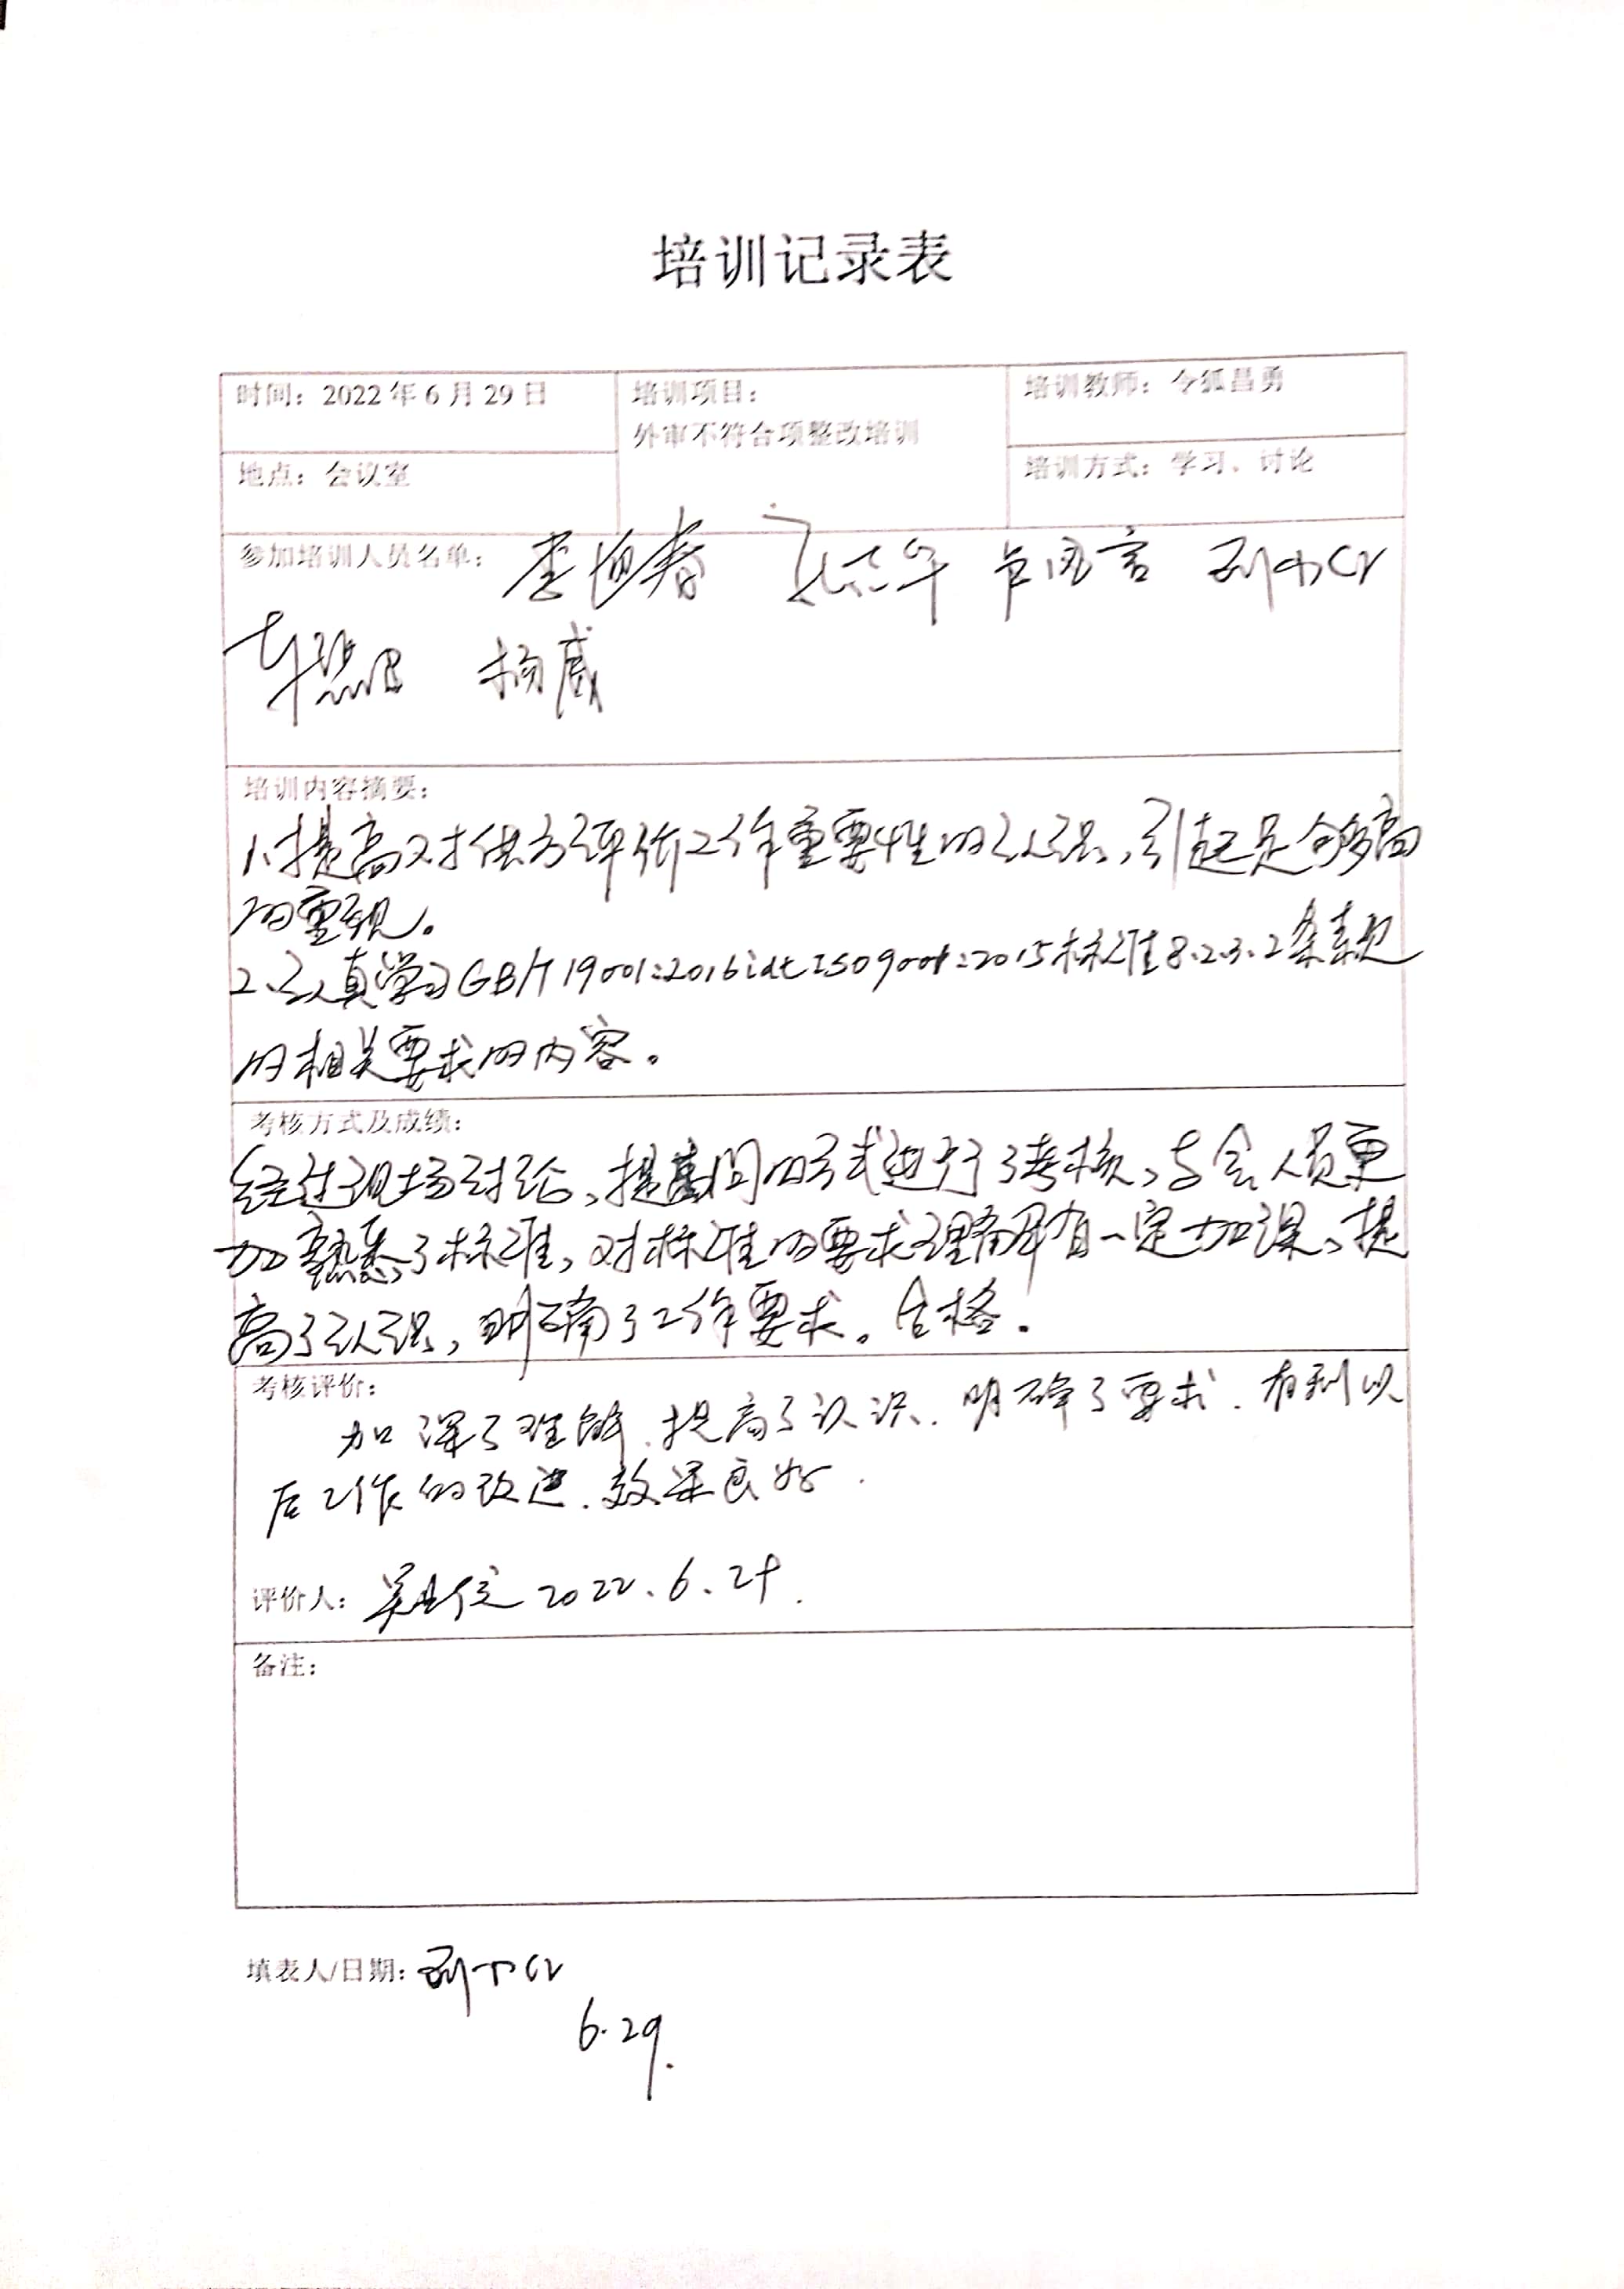 培训记录表
时间：2022年6月29日
培训项目：
外审不符合项整改培训
培训教师：令狐昌勇
地点：会议室
培训方式：学习、讨论
参加培训人员名单：
杨威
培训内容摘要：
1、提高对供方评价工作重要性的认识，引起足够高
的重视。
2、认真学习GB/T19001:2016idtISO9001:2015标准8.2.3.2条条款
的相关要求的内容。
考核方式及成绩：
经过现场讨论、提问的方式进行了考核，与会人员更
加熟悉了标准，对标准的要求理解有一定加深、提
高了认识，明确了工作要求。合格.
考核评价：
加深了理解.提高了认识.明确了要求.有利以
后工作的改进.效果良好.
评价人： 2022.6.29.
备注：
填表人/日期：
6.29.